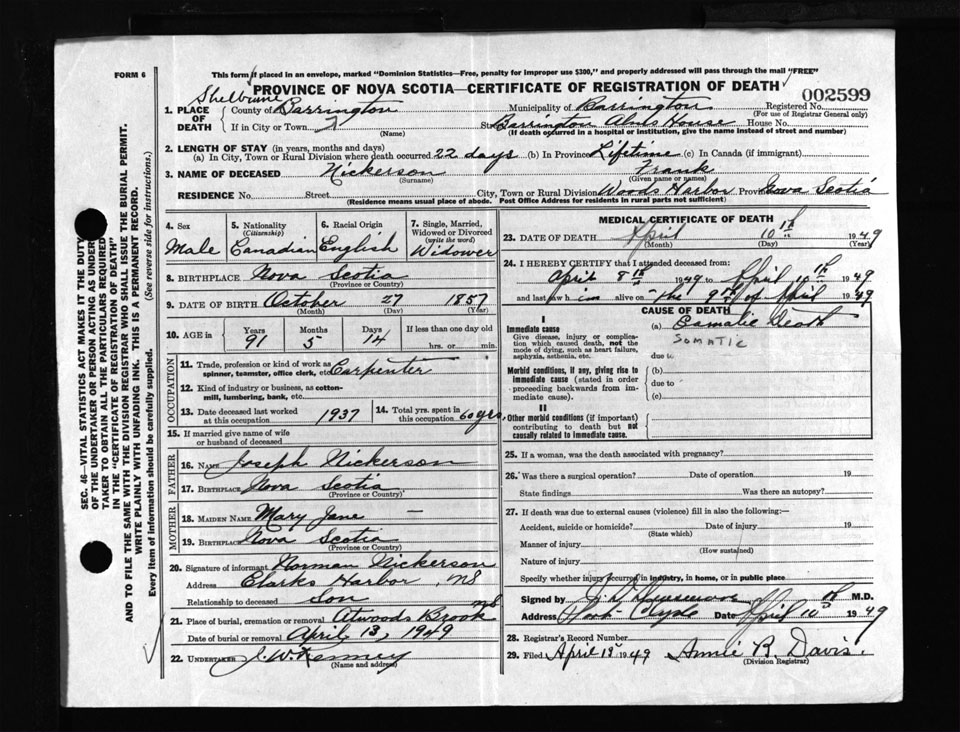 FORM 6
This form if placed in an envelope, marked "Dominion Statistics—Free, penalty for improper use $300," and properly addressed will pass through the mail "FREE"
PROVINCE OF NOVA SCOTIA—CERTIFICATE OF REGISTRATION OF DEATH
002599
Shelburne
1. PLACE OF DEATH
County of Barrington Municipality of Barrington Registered No.
(For use of Registrar General only)
If in City or Town St. Barrington Alms House House No.
(Name) (If death occurred in a hospital or institution, give the name instead of street and number)
2. LENGTH OF STAY (in years, months and days)
(a) In City, Town or Rural Division where death occurred 22 days (b) In Province Lifetime (c) In Canada (if immigrant)
3. NAME OF DECEASED Nickerson Frank
(Surname) (Given name or names)
RESIDENCE No. Street City, Town or Rural Division Woods Harbor Prov. Nova Scotia
(Residence means usual place of abode. Post Office Address for residents in rural parts not sufficient)
4. Sex
Male
5. Nationality
(Citizenship)
Canadian
6. Racial Origin
English
7. Single, Married, Widowed or Divorced
(write the word)
Widower
8. BIRTHPLACE Nova Scotia
(Province or Country)
9. DATE OF BIRTH October 27 1857
(Month) (Day) (Year)
10. AGE in
Years Months Days If less than one day old
91 5 14 hrs. or min.
OCCUPATION
11. Trade, profession or kind of work as
spinner, teamster, office clerk, etc. Carpenter
12. Kind of industry or business, as cotton-
mill, lumbering, bank, etc.
13. Date deceased last worked
at this occupation 1937
14. Total yrs. spent in
this occupation 60 yrs.
15. If married give name of wife
or husband of deceased
FATHER
16. NAME Joseph Nickerson
17. BIRTHPLACE Nova Scotia
(Province or Country)
MOTHER
18. MAIDEN NAME Mary Jane —
19. BIRTHPLACE Nova Scotia
(Province or Country)
20. Signature of informant Norman Nickerson
Address Clarks Harbor, NS
Relationship to deceased Son
21. Place of burial, cremation or removal Atwoods Brook NS
Date of burial or removal April 13, 1949
22. UNDERTAKER J. W. Kenney
(Name and address)
MEDICAL CERTIFICATE OF DEATH
23. DATE OF DEATH April 10th 1949
(Month) (Day) (Year)
24. I HEREBY CERTIFY that I attended deceased from:
April 8th 1949 to April 10th 1949
and last saw him alive on the 9th of April 1949
CAUSE OF DEATH
I
Immediate cause
Give disease, injury or complication which caused death, not the mode of dying, such as heart failure, asphyxia, asthenia, etc.
(a) Somatic Death
SOMATIC
due to
Morbid conditions, if any, giving rise to immediate cause (stated in order proceeding backwards from immediate cause).
(b)
due to
(c)
II
Other morbid conditions (if important) contributing to death but not causally related to immediate cause.
25. If a woman, was the death associated with pregnancy?
26. Was there a surgical operation? Date of operation 19
State findings Was there an autopsy?
27. If death was due to external causes (violence) fill in also the following:—
Accident, suicide or homicide? Date of injury 19
(State which)
Manner of injury
(How sustained)
Nature of injury
Specify whether injury occurred in industry, in home, or in public place
Signed by M.D.
Address Port Clyde Date April 10th 1949
28. Registrar's Record Number
29. Filed April 12 1949 Annie B. Davis.
(Division Registrar)
SEC. 46—VITAL STATISTICS ACT MAKES IT THE DUTY
OF THE UNDERTAKER OR PERSON ACTING AS UNDER-
TAKER TO OBTAIN ALL THE PARTICULARS REQUIRED
IN THE "CERTIFICATE OF REGISTRATION OF DEATH"
AND TO FILE THE SAME WITH THE DIVISION REGISTRAR WHO SHALL ISSUE THE BURIAL PERMIT.
WRITE PLAINLY WITH UNFADING INK. THIS IS A PERMANENT RECORD.
Every item of information should be carefully supplied. (See reverse side for instructions.)